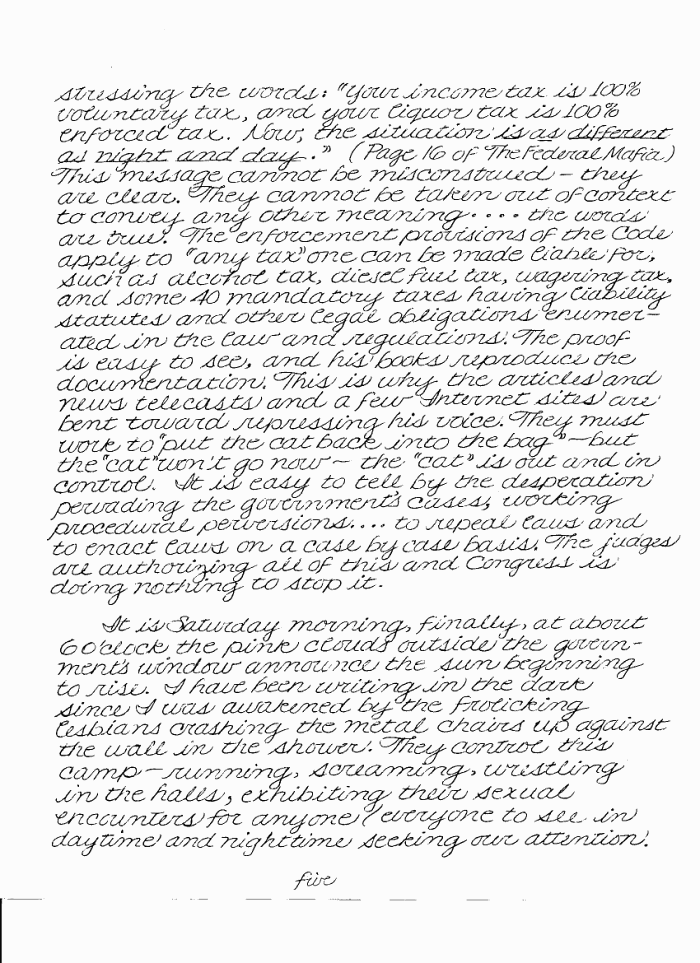 stressing the words: "Your income tax is 100%
voluntary tax, and your liquor tax is 100%
enforced tax. Now, the situation is as different
as night and day." (Page 16 of The Federal Mafia)
This message cannot be misconstrued – they
are clear. They cannot be taken out of context
to convey any other meaning .... the words
are true. The enforcement provisions of the Code
apply to "any tax" one can be made liable for,
such as alcohol tax, diesel fuel tax, wagering tax,
and some 40 mandatory taxes having liability
statutes and other legal obligations enumer-
ated in the law and regulations. The proof
is easy to see, and his books reproduce the
documentation. This is why the articles and
news telecasts and a few Internet sites are
bent toward repressing his voice. They must
work to "put the cat back into the bag" – but
the "cat" won't go now – the "cat" is out and in
control. It is easy to tell by the desperation
pervading the government's cases, working
procedural perversions.... to repeal laws and
to enact laws on a case by case basis. The judges
are authorizing all of this and Congress is
doing nothing to stop it.
It is Saturday morning, finally, at about
6 o'clock the pink clouds outside the govern-
ment's window announce the sun beginning
to rise. I have been writing in the dark
since I was awakened by the frolicking
lesbians crashing the metal chairs up against
the wall in the shower. They control this
camp – running, screaming, wrestling
in the halls, exhibiting their sexual
encounters for anyone/everyone to see in
daytime and nighttime seeking our attention.
five